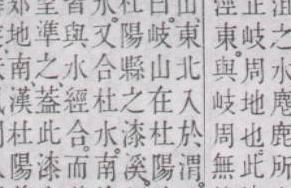 沮之水麀鹿所
正岐周地也此
涇東與岐周無
山東北入於渭
曰岐山在杜陽
杜陽縣之漆溪
水又合杜水南
皆與水經合而
準之蓋此漆
地南漢杜陽